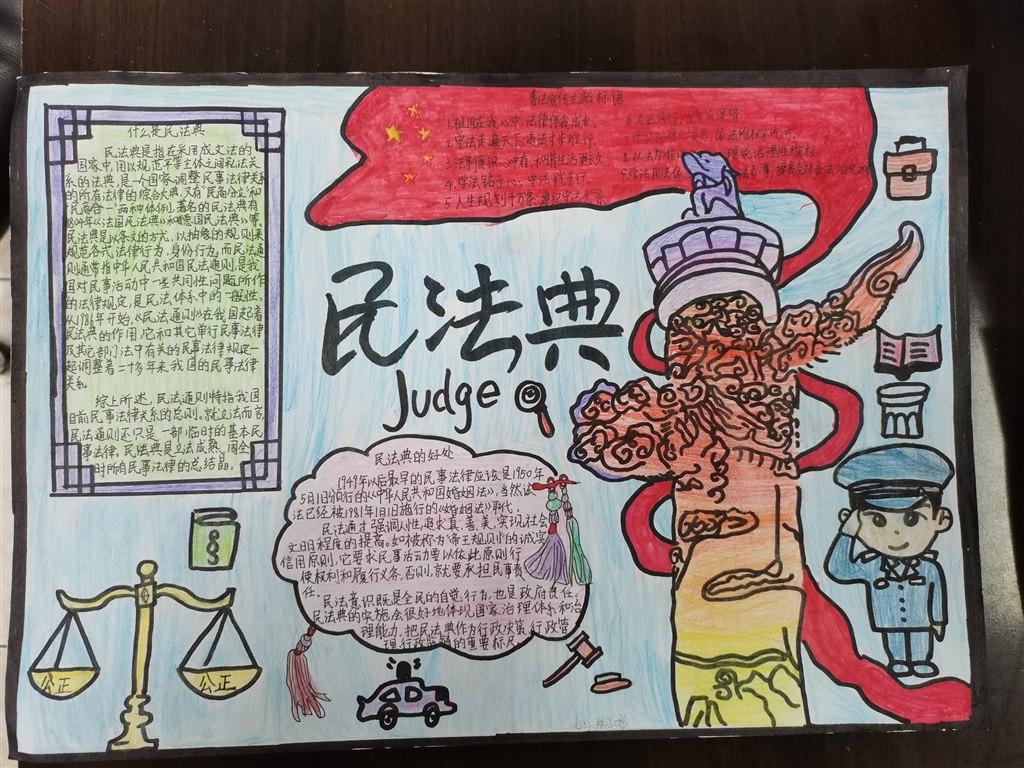 什么是民法典
民法典是指在采用成文法的
国家中,用以规范平等主体之间私法关
系的法典,是一个国家调整民事法律关系
的所有法律的综合大典,又有"民商分立"和
"民商合一"两种体例,著名的民法典有
1804年《法国民法典》和《德国民法典》等。
民法典是以条文的方式,以抽象的规则来
规范各式法律行为,身份行为。而民法通
则通常指中华人民共和国民法通则,是我
国对民事活动中一些共同性问题所作
的法律规定,是民法体系中的一般法。
从1981年开始,《民法通则》在我国起着
民法典的作用,它和其它单行民事法律
及其它部门法中有关的民事法律规定一
起调整着二十多年来我国的民事法律
关系。
综上所述,民法通则特指我国
目前民事法律关系的总则,就立法而言,
民法通则还只是一部临时的基本民
事法律。民法典是立法成熟、周全
时所有民事法律的总结晶。
普法宣传主题标语
1.祖国在我心中,法律伴我成长。
2.守法走遍天下,违法寸步难行。
3.法制意识心中有,和谐生活更长久
4.学法铭于心,守法践于行。
5.人生规划千万条
依法维权不吃亏。
8.以法为准
理说法理性维权
9.学法用法
民法典
Judge
民法典的好处
1949年以后最早的民事法律应该是1950年
5月1日颁行的《中华人民共和国婚姻法》,当然该
法已经被1981年1月1日施行的《婚姻法》取代。
民法通过强调人性,追求真、善、美,实现社会
文明程度的提高。如被称为"帝王规则"的诚实
信用原则,它要求民事活动要以依此原则行
使权利和履行义务,否则,就要承担民事责
任。
民法意识既是全民的自觉行为,也是政府责任。
民法典的实施会很好地体现国家治理体系和治
理能力,把民法典作为行政决策、行政管
理、行政监督的重要标尺
公正
公正